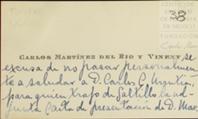 38
CARLOS MARTÍNEZ DEL RIO Y VINENT se
escusa de no pasar personalmen
te a saludar a D. Carlos C.
para quien trajo de Saltillo la ad
junta Carta de presentación de D. Mar.